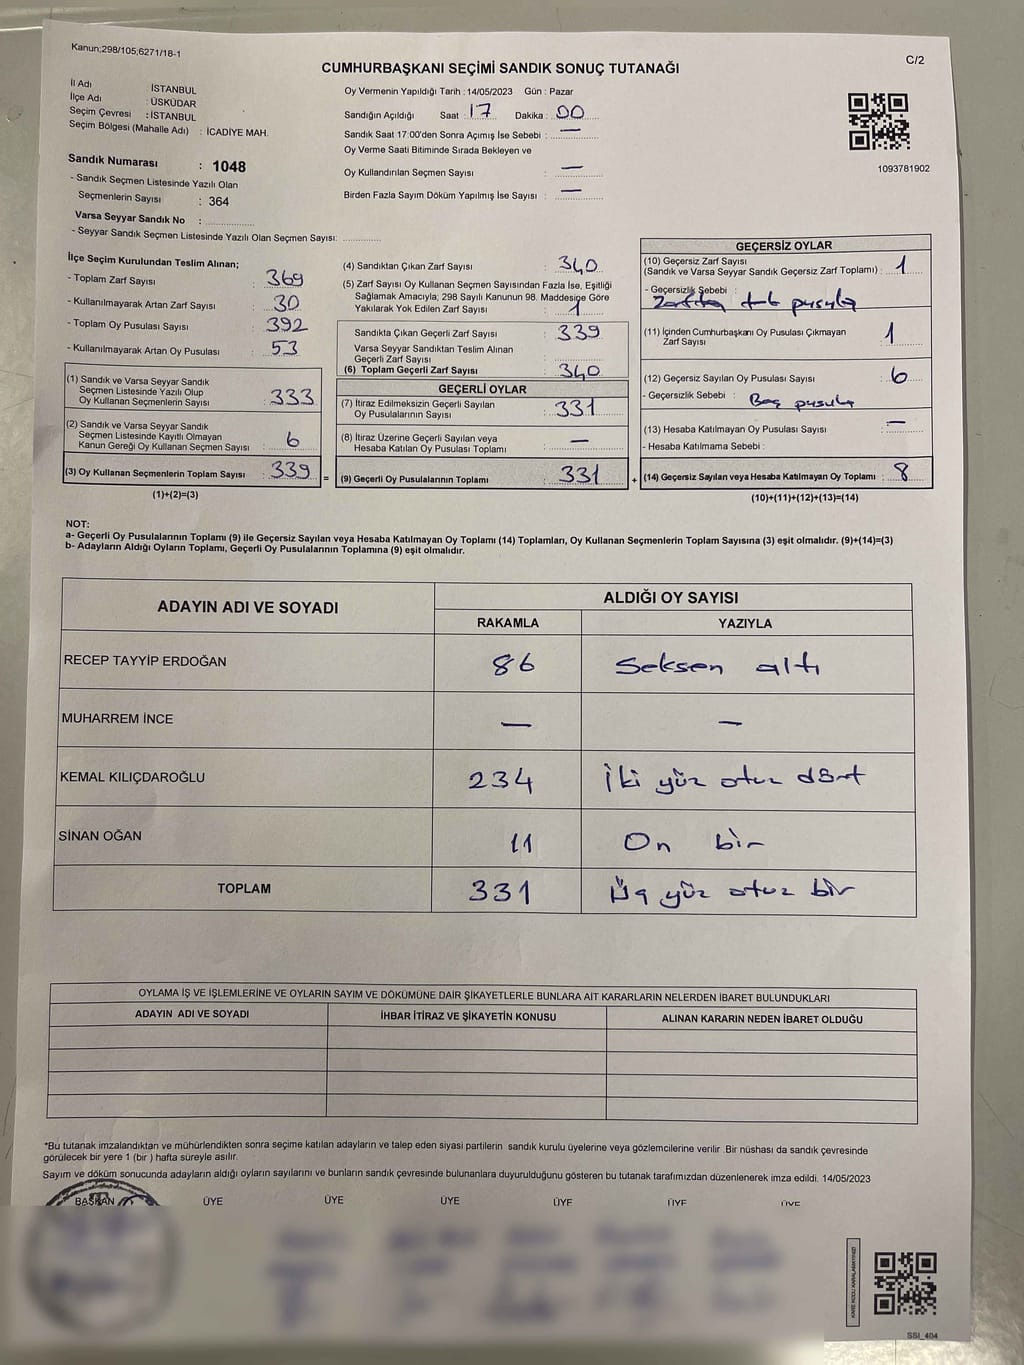 Kanun;298/105,6271/18-1
C/2
CUMHURBAŞKANI SEÇİMİ SANDIK SONUÇ TUTANAĞI
İl Adı : İSTANBUL
İlçe Adı : ÜSKÜDAR
Seçim Çevresi : İSTANBUL
Seçim Bölgesi (Mahalle Adı) : İCADİYE MAH.
Sandık Numarası : 1048
- Sandık Seçmen Listesinde Yazılı Olan
Seçmenlerin Sayısı : 364
Varsa Seyyar Sandık No :
- Seyyar Sandık Seçmen Listesinde Yazılı Olan Seçmen Sayısı:
Oy Vermenin Yapıldığı Tarih : 14/05/2023 Gün : Pazar
Sandığın Açıldığı Saat : 17 Dakika : 00
Sandık Saat 17:00'den Sonra Açımış İse Sebebi : —
Oy Verme Saati Bitiminde Sırada Bekleyen ve
Oy Kullandırılan Seçmen Sayısı : —
Birden Fazla Sayım Döküm Yapılmış İse Sayısı : —
1093781902
İlçe Seçim Kurulundan Teslim Alınan;
- Toplam Zarf Sayısı : 369
- Kullanılmayarak Artan Zarf Sayısı : 30
- Toplam Oy Pusulası Sayısı : 392
- Kullanılmayarak Artan Oy Pusulası : 53
(1) Sandık ve Varsa Seyyar Sandık
Seçmen Listesinde Yazılı Olup
Oy Kullanan Seçmenlerin Sayısı : 333
(2) Sandık ve Varsa Seyyar Sandık
Seçmen Listesinde Kayıtlı Olmayan
Kanun Gereği Oy Kullanan Seçmen Sayısı : 6
(3) Oy Kullanan Seçmenlerin Toplam Sayısı : 339
(1)+(2)=(3)
(4) Sandıktan Çıkan Zarf Sayısı : 340
(5) Zarf Sayısı Oy Kullanan Seçmen Sayısından Fazla İse, Eşitliği
Sağlamak Amacıyla; 298 Sayılı Kanunun 98. Maddesine Göre
Yakılarak Yok Edilen Zarf Sayısı : 1
Sandıkta Çıkan Geçerli Zarf Sayısı : 339
Varsa Seyyar Sandıktan Teslim Alınan
Geçerli Zarf Sayısı :
(6) Toplam Geçerli Zarf Sayısı : 340
GEÇERLİ OYLAR
(7) İtiraz Edilmeksizin Geçerli Sayılan
Oy Pusulalarının Sayısı : 331
(8) İtiraz Üzerine Geçerli Sayılan veya
Hesaba Katılan Oy Pusulası Toplamı : —
= (9) Geçerli Oy Pusulalarının Toplamı : 331
GEÇERSİZ OYLAR
(10) Geçersiz Zarf Sayısı
(Sandık ve Varsa Seyyar Sandık Geçersiz Zarf Toplamı) : 1
- Geçersizlik Sebebi :
Zarfta pusula
(11) İçinden Cumhurbaşkanı Oy Pusulası Çıkmayan
Zarf Sayısı : 1
(12) Geçersiz Sayılan Oy Pusulası Sayısı : 6
- Geçersizlik Sebebi : Boş pusula
(13) Hesaba Katılmayan Oy Pusulası Sayısı : —
- Hesaba Katılmama Sebebi :
+ (14) Geçersiz Sayılan veya Hesaba Katılmayan Oy Toplamı : 8
(10)+(11)+(12)+(13)=(14)
NOT:
a- Geçerli Oy Pusulalarının Toplamı (9) ile Geçersiz Sayılan veya Hesaba Katılmayan Oy Toplamı (14) Toplamları, Oy Kullanan Seçmenlerin Toplam Sayısına (3) eşit olmalıdır. (9)+(14)=(3)
b- Adayların Aldığı Oyların Toplamı, Geçerli Oy Pusulalarının Toplamına (9) eşit olmalıdır.
ADAYIN ADI VE SOYADI
ALDIĞI OY SAYISI
RAKAMLA YAZIYLA
RECEP TAYYİP ERDOĞAN 86 Seksen altı
MUHARREM İNCE — —
KEMAL KILIÇDAROĞLU 234 İki yüz otuz dört
SİNAN OĞAN 11 On bir
TOPLAM 331 Üç yüz otuz bir
OYLAMA İŞ VE İŞLEMLERİNE VE OYLARIN SAYIM VE DÖKÜMÜNE DAİR ŞİKAYETLERLE BUNLARA AİT KARARLARIN NELERDEN İBARET BULUNDUKLARI
ADAYIN ADI VE SOYADI İHBAR İTİRAZ VE ŞİKAYETİN KONUSU ALINAN KARARIN NEDEN İBARET OLDUĞU
*Bu tutanak imzalandıktan ve mühürlendikten sonra seçime katılan adayların ve talep eden siyasi partilerin sandık kurulu üyelerine veya gözlemcilerine verilir Bir nüshası da sandık çevresinde
görülecek bir yere 1 (bir ) hafta süreyle asılır.
Sayım ve döküm sonucunda adayların aldığı oyların sayılarını ve bunların sandık çevresinde bulunanlara duyurulduğunu gösteren bu tutanak tarafımızdan düzenlenerek imza edildi. 14/05/2023
BAŞKAN ÜYE ÜYE ÜYE ÜYE ÜYE ÜYE
SSI_404